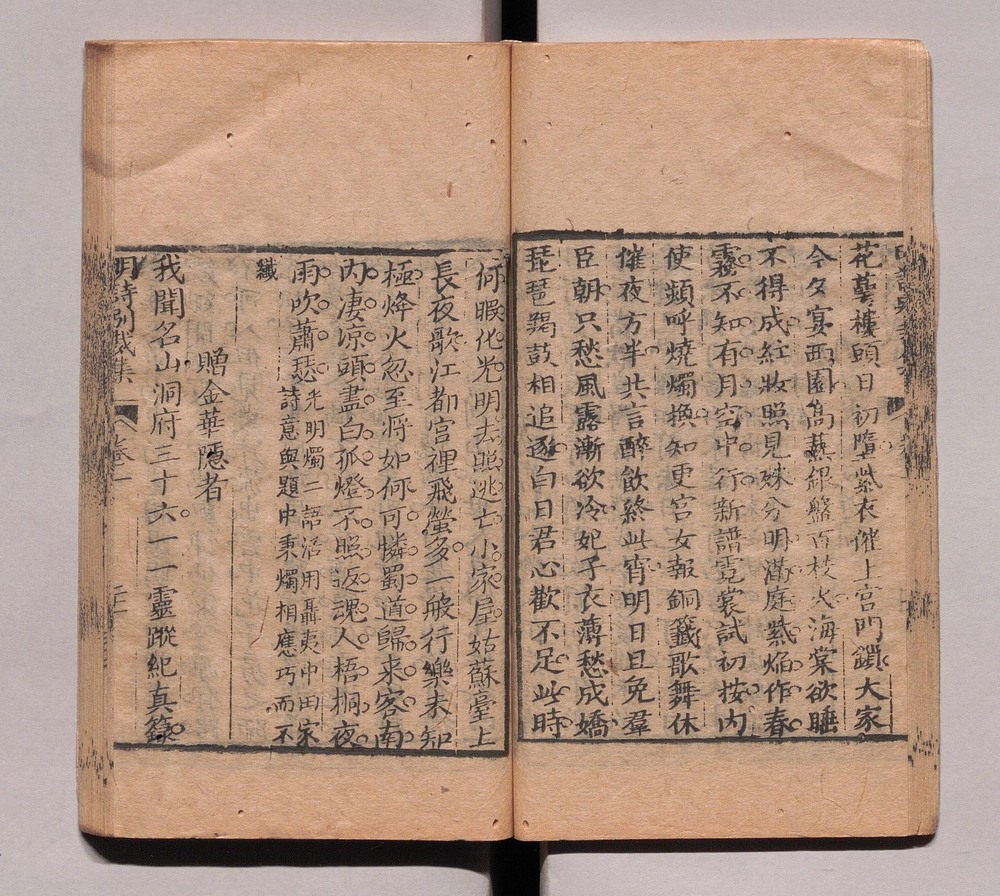 花萼樓頭日初墮紫衣催上宮門鎖大家
今夕宴西園高爇銀盤百枝火海棠欲睡
不得成紅妝照見殊分明滿庭紫焰作春
霧不知有月空中行新譜霓裳試初按內
使頻呼燒燭換知更宮女報銅籤歌舞休
催夜方半共言醉飲終此宵明日且免羣
臣朝只愁風露漸欲冷妃子衣薄愁成嬌
琵琶羯鼓相追逐白日君心歡不足此時
何暇化光明去照逃亡小家屋姑蘇臺上
長夜歌江都宮裡飛螢多一般行樂未知
極烽火忽至將如何可憐蜀道歸来客南
內凄凉頭盡白孤燈不照返魂人梧桐夜
雨吹蕭瑟光明燭二語活用聶夷中田家
詩意與題中秉燭相應巧而不
纖
贈金華隱者
我聞名山洞府三十六一一靈蹤紀真籙
明詩別裁集 卷一